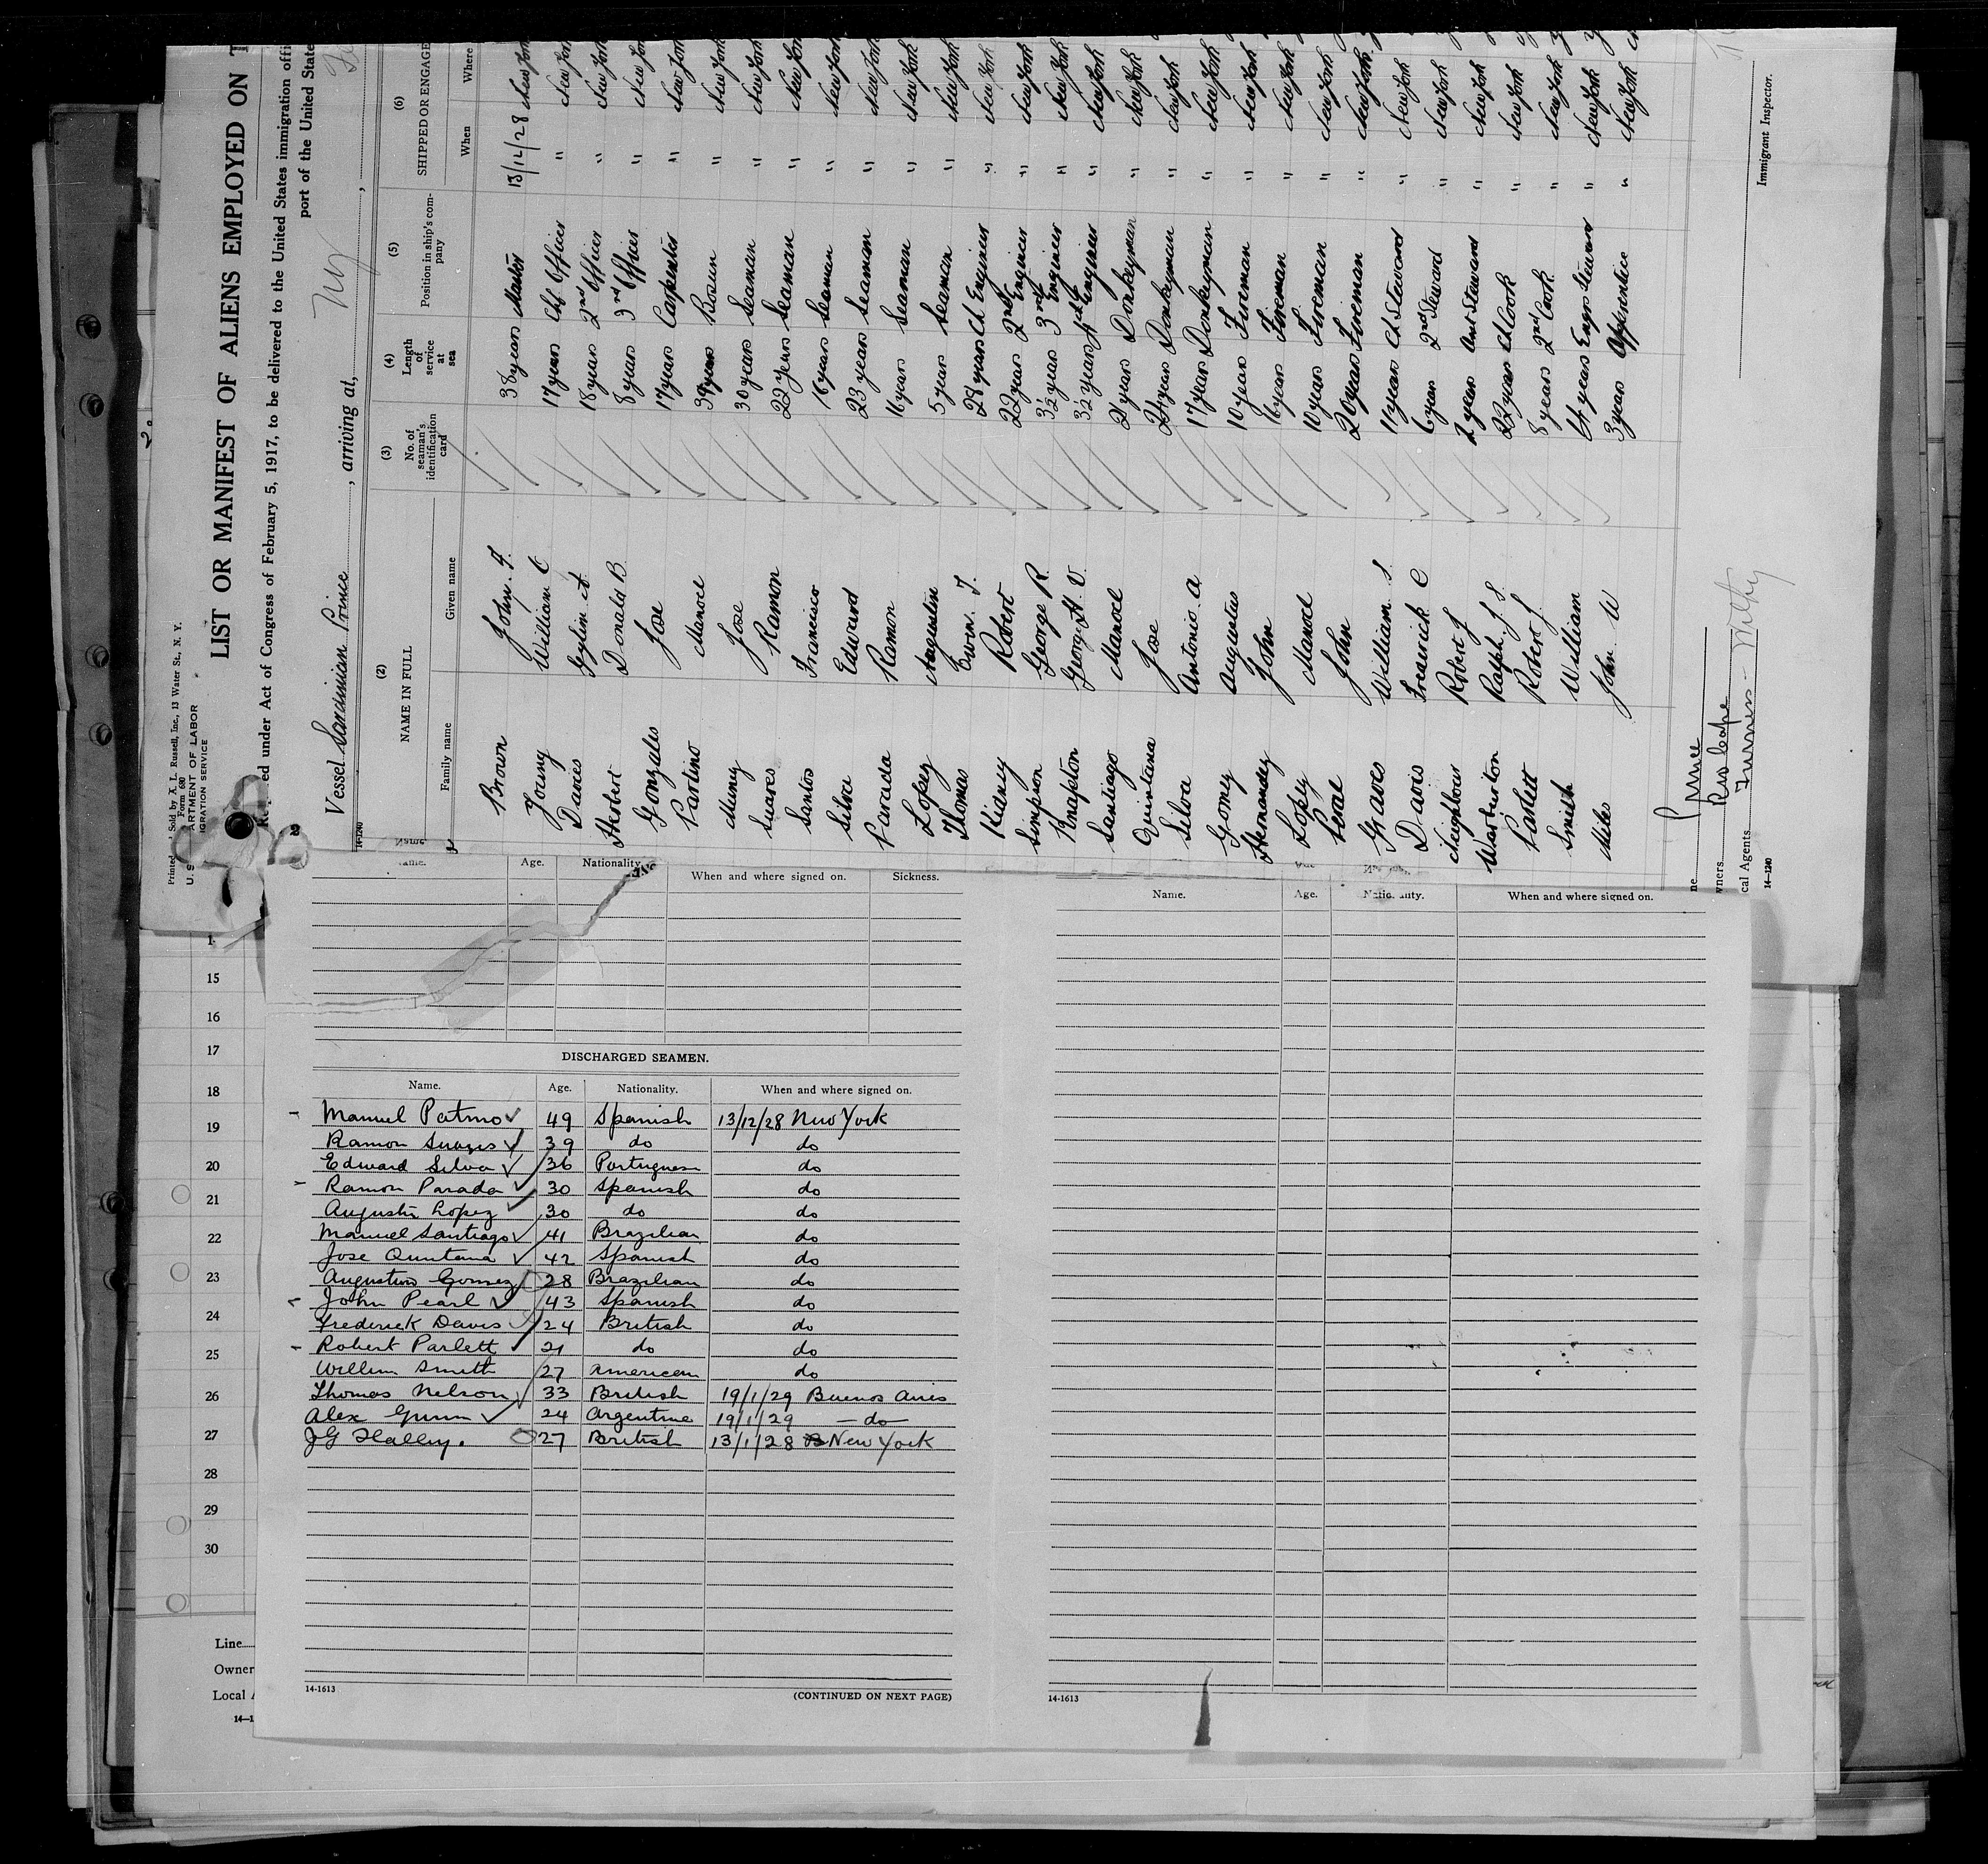 Printed Sold by A. L. Russell, Inc., 13 Water St., N. Y.
Form 680
U. S. ARTMENT OF LABOR
IGRATION SERVICE
LIST OR MANIFEST OF ALIENS EMPLOYED ON T
ed under Act of Congress of February 5, 1917, to be delivered to the United States immigration offi
port of the United State
Vessel Sardinian Prince, arriving at, NY
(2) (3) (4) (5) (6)
NAME IN FULL No. of seaman's identification card Length of service at sea Position in ship's company SHIPPED OR ENGAGE
Family name Given name When Where
Brown John. F. 38 years Master 13/12/28 New York
Young William C 17 years Ch Officer " New York
Davies 18 years 2nd Officer " New York
Herbert Donald B. 8 years 3rd Officer " New York
Gonzales Jose 17 years Carpenter " New York
Partino Manoel 39 years Bosun " New York
Muney Jose 30 years Seaman " New York
Suares Ramon 22 years Seaman " New York
Santos Francisco 16 years Seaman " New York
Silva Edward 23 years Seaman " New York
Paracla Ramon 16 years Seaman " New York
Lopez Augustin 5 years Seaman " New York
Thomas Ewen. T. 28 years Ch Engineer " New York
Kidney Robert 22 years 2nd Engineer " New York
Simpson George R. 3½ years 3rd Engineer " New York
Knapton George H. V. 3½ years 4th Engineer " New York
Santiago Manoel 21 years Donkeyman " New York
Quintana Jose 24 years Donkeyman " New York
Silva Antonio. A 17 years Donkeyman " New York
Gomez Augustus 10 years Fireman " New York
Hernandez John 16 years Fireman " New York
Lopez Manoel 10 years Fireman " New York
Peral John 20 years Fireman " New York
Graves William S. 11 years Ch Steward " New York
Davis Frederick C 6 years 2nd Steward " New York
Neighbour Robert J 2 years Asst Steward " New York
Warburton Ralph. J. S. 22 years Ch Cook " New York
Parlett Robert J. 8 years 2nd Cook " New York
Smith William 6½ years Engrs Steward " New York
Miles John W 3 years Apprentice " New York
ne Prince
wners Rio Cape
cal Agents Furness- Withy
Immigrant Inspector.
14—1240
14-1240
Name. Age. Nationality. When and where signed on. Sickness.
Name. Age. Natio. ality. When and where signed on.
DISCHARGED SEAMEN.
Name. Age. Nationality. When and where signed on.
Manuel Patino 49 Spanish 13/12/28 New York
Ramon Suares 39 do do
Edward Silva 36 Portuguese do
Ramon Parada 30 Spanish do
Augustin Lopez 30 do do
Manuel Santiago 41 Brazilian do
Jose Quintana 42 Spanish do
Augustus Gomez 28 Brazilian do
John Pearl 43 Spanish do
Frederick Davis 24 British do
Robert Parlett 21 do do
William Smith 27 American do
Thomas Nelson 33 British 19/1/29 Buenos Aires
Alex Gunn 24 Argentine 19/1/29 —do—
JG Halley. 27 British 13/1/28 New York
14-1613
(CONTINUED ON NEXT PAGE)
14-1613
15
16
17
18
19
20
21
22
23
24
25
26
27
28
29
30
Line
Owner
Local A
14—1